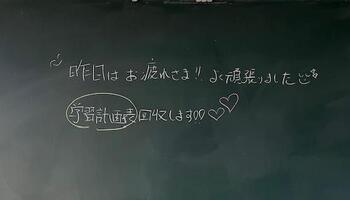 昨日はお疲れさま!! よく頑張りました
学習計画表回収します!!♡♡